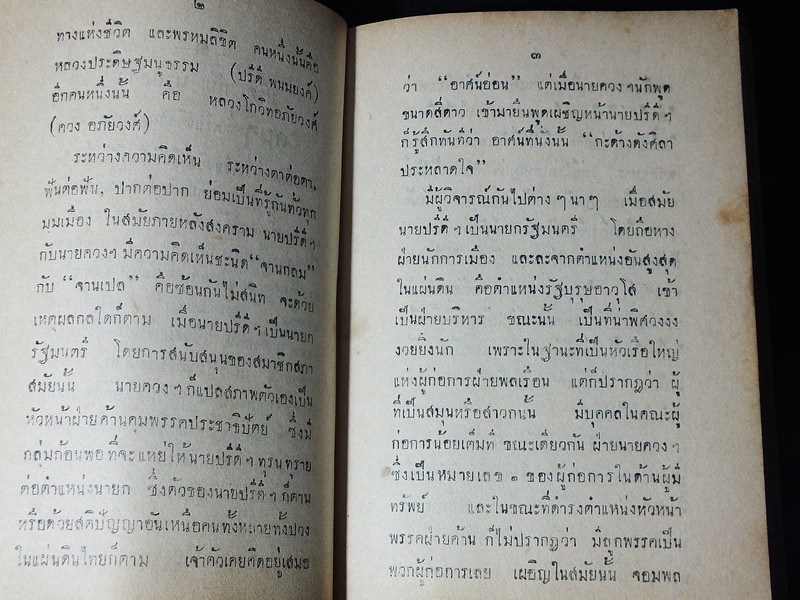 ๒
ทางแห่งชีวิต และพรหมลิขิต คนหนึ่งนั้นคือ
หลวงประดิษฐมนูธรรม (ปรีดี พนมยงค์)
อีกคนหนึ่งนั้น คือ หลวงโกวิทอภัยวงศ์
(ควง อภัยวงศ์)
ระหว่างความคิดเห็น ระหว่างตาต่อตา,
ฟันต่อฟัน, ปากต่อปาก ย่อมเป็นที่รู้กันทั่วทุก
มุมเมือง ในสมัยภายหลังสงคราม นายปรีดี ฯ
กับนายควง ฯ มีความคิดเห็นชะนิด “จานกลม”
กับ “จานเปล” คือซ้อนกันไม่สนิท จะด้วย
เหตุผลกลใดก็ตาม เมื่อนายปรีดี ฯ เป็นนายก
รัฐมนตรี โดยการสนับสนุนของสมาชิกสภา
สมัยนั้น นายควง ฯ ก็แปลสภาพตัวเองเป็น
หัวหน้าฝ่ายค้านคุมพรรคประชาธิปัตย์ ซึ่งมี
กลุ่มก้อนพอที่จะแหย่ให้นายปรีดี ฯ ทุรนทุราย
ต่อตำแหน่งนายก ซึ่งตัวของนายปรีดี ฯ ก็ด้าน
หรือด้วยสติปัญญาอันเหนือคนทั้งหลายทั้งปวง
ในแผ่นดินไทยก็ตาม เจ้าตัวเคยคิดอยู่เสมอ
๓
ว่า “อาศน์อ่อน” แต่เมื่อนายควง ฯ นักพูด
ขนาดสี่ดาว เข้ามายืนพูดเผชิญหน้านายปรีดี ฯ
ก็รู้สึกทันทีว่า อาศน์ที่นั่งนั้น “กะด้างดังศิลา
ประหลาดใจ”
มีผู้วิจารณ์กันไปต่าง ๆ นา ๆ เมื่อสมัย
นายปรีดี ฯ เป็นนายกรัฐมนตรี โดยถือหาง
ฝ่ายนักการเมือง และละจากตำแหน่งอันสูงสุด
ในแผ่นดิน คือตำแหน่งรัฐบุรุษอาวุโส เข้า
เป็นฝ่ายบริหาร ขณะนั้น เป็นที่น่าพิศวงงง
งวยยิ่งนัก เพราะในฐานะที่เป็นหัวเรือใหญ่
แห่งผู้ก่อการฝ่ายพลเรือน แต่ก็ปรากฏว่า ผู้
ที่เป็นสมุนหรือสาวกนั้น มีบุคคลในคณะผู้
ก่อการน้อยเต็มที่ ขณะเดียวกัน ฝ่ายนายควง ฯ
ซึ่งเป็นหมายเลข ๑ ของผู้ก่อการในด้านผู้มี
ทรัพย์ และในขณะที่ดำรงตำแหน่งหัวหน้า
พรรคฝ่ายค้าน ก็ไม่ปรากฏว่า มีลูกพรรคเป็น
พวกผู้ก่อการเลย เผอิญในสมัยนั้น จอมพล